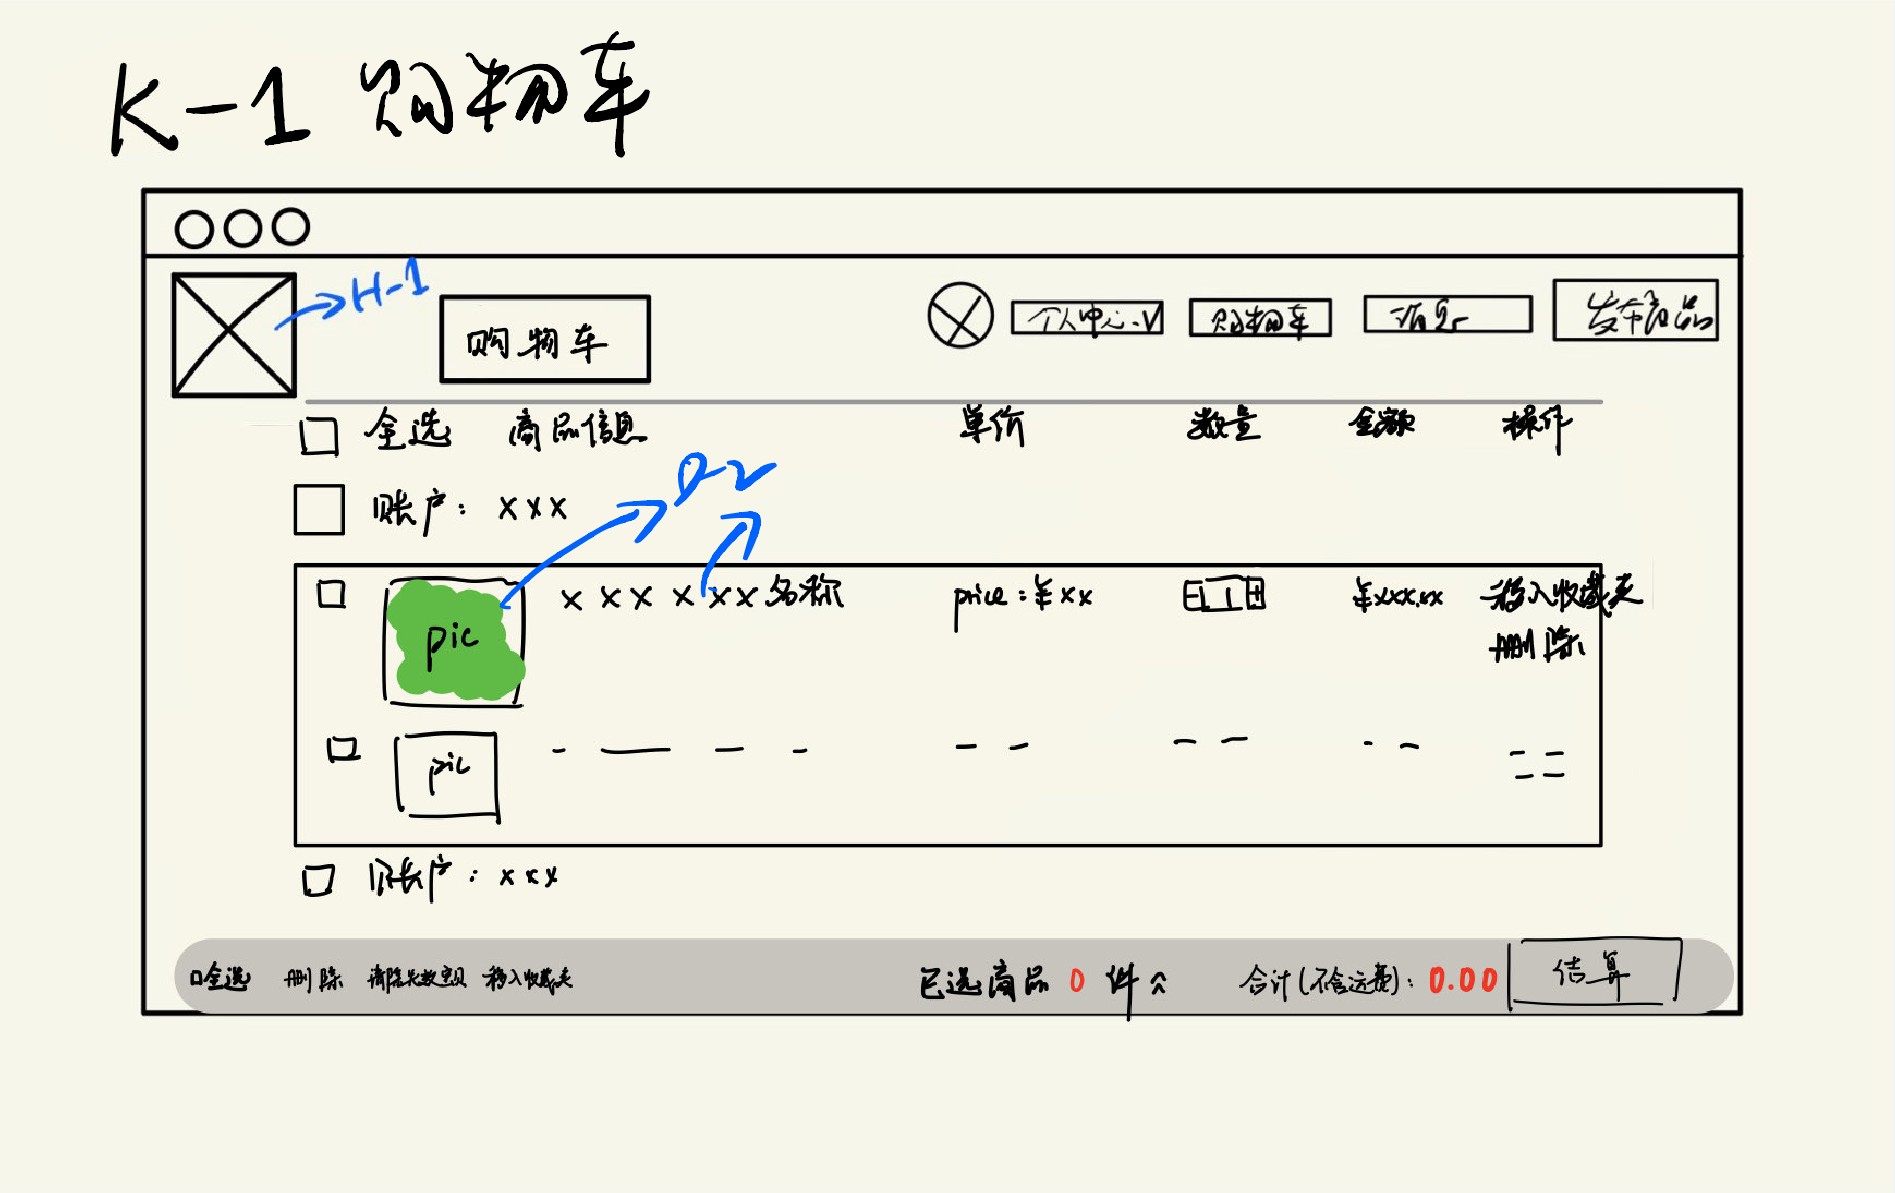 K-1 购物车
H-1
购物车 个人中心 V 购物车 消息 发布商品
全选 商品信息 单价 数量 金额 操作
账户: xxx
pic xxxxxx名称 price: ¥xx ¥xxx.xx 移入收藏夹
删除
pic
账户: xxx
全选 删除 移入收藏夹 已选商品 0 件 合计(不含运费): 0.00 结算